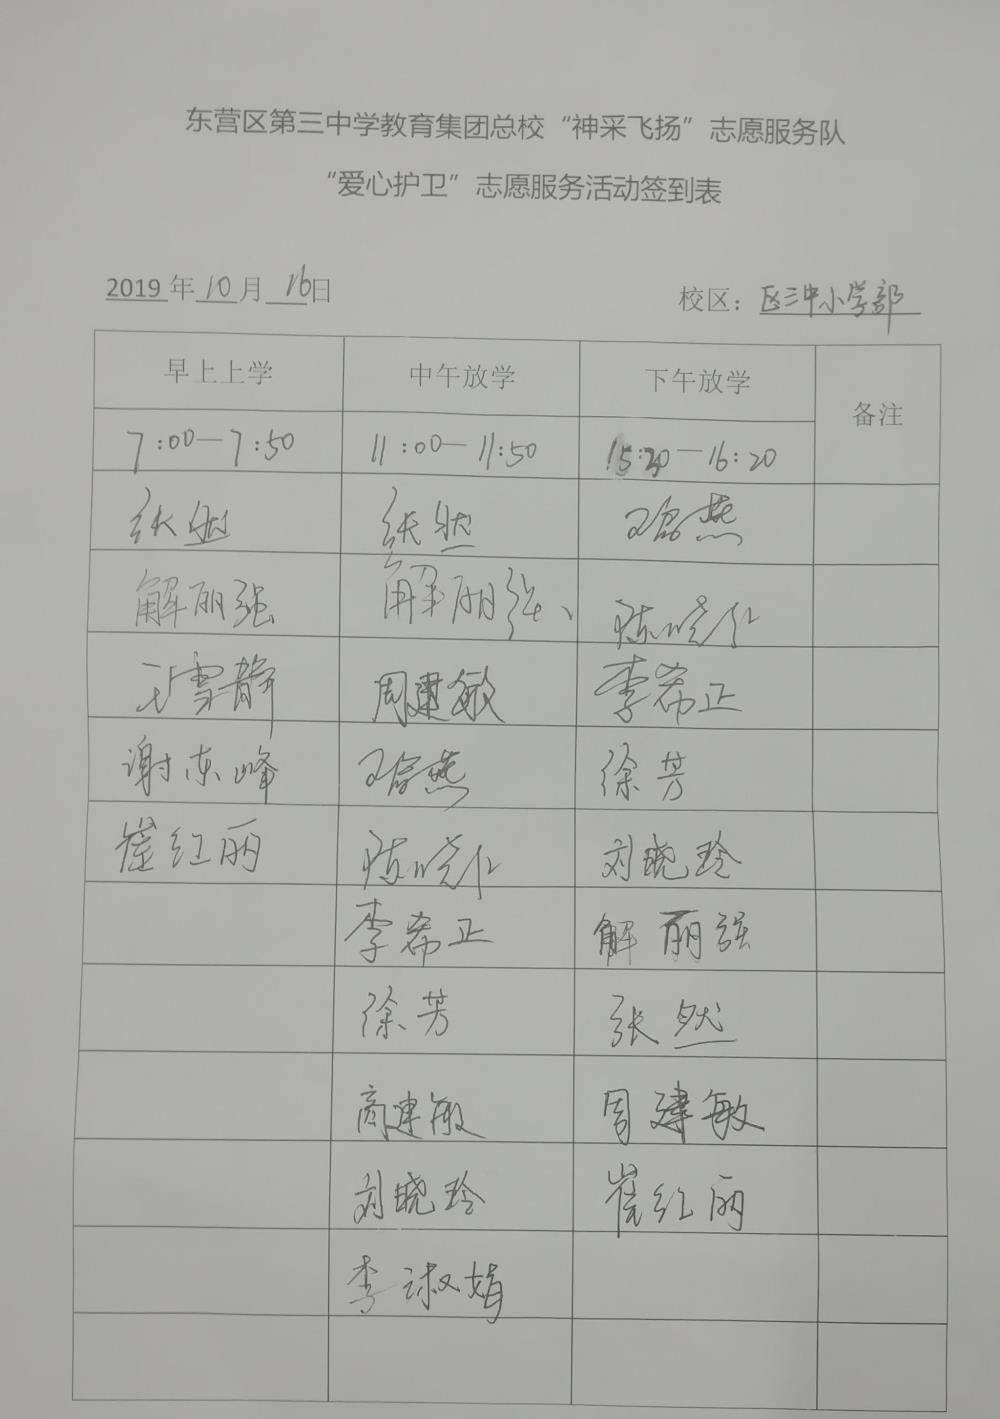 东营区第三中学教育集团总校“神采飞扬”志愿服务队
“爱心护卫”志愿服务活动签到表
2019年10月16日 校区：区三中小学部
早上上学 中午放学 下午放学 备注
7:00—7:50 11:00—11:50 15:20—16:20
张然 张然 燕
解丽强 解丽强、 陈晓红
王雪静 周建敏 李希正
谢东峰 燕 徐芳
崔红丽 陈晓红 刘晓玲
李希正 解丽强
徐芳 张然
商建敏 周建敏
刘晓玲 崔红丽
李淑娟